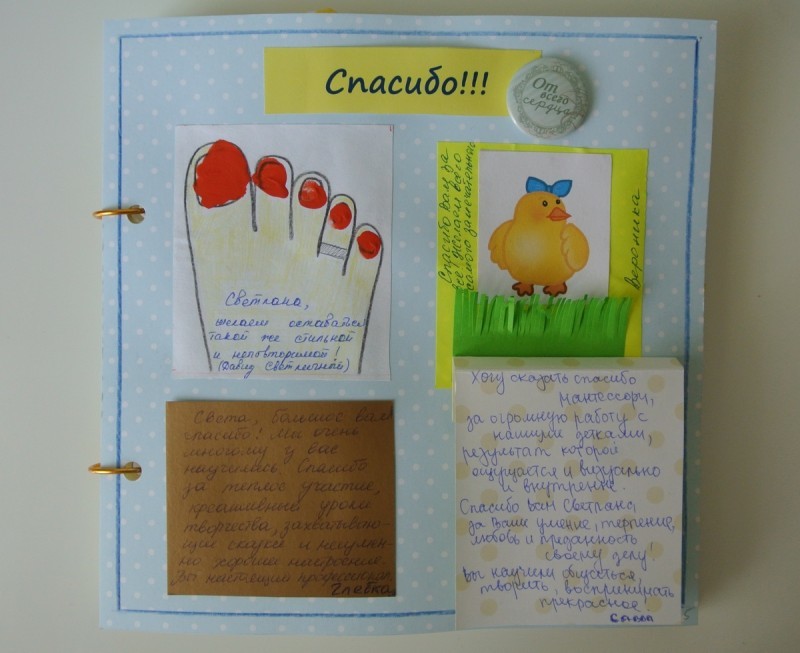 Спасибо!!!
От
всего
сердца
Светлана,
желаем оставаться
такой же стильной
и неповторимой!
(Давид Светличный)
Спасибо вам за
все желаем всего
самого замечательного
вероника
Света, большое вам
спасибо! Мы очень
многому у вас
научились. Спасибо
за теплое участие,
креативные уроки
творчества, захватываю-
щие сказки и неизмен-
но хорошее настроение.
Вы настоящий профессионал.
Глебка
Хочу сказать спасибо
Монтессори,
за огромную работу с
нашими детками,
результат которой
ощущается и визуально
и внутренне.
Спасибо Вам Светлана,
за Ваше умение, терпение,
любовь и преданность
своему делу!
Вы научили общаться,
творить, воспринимать
прекрасное!